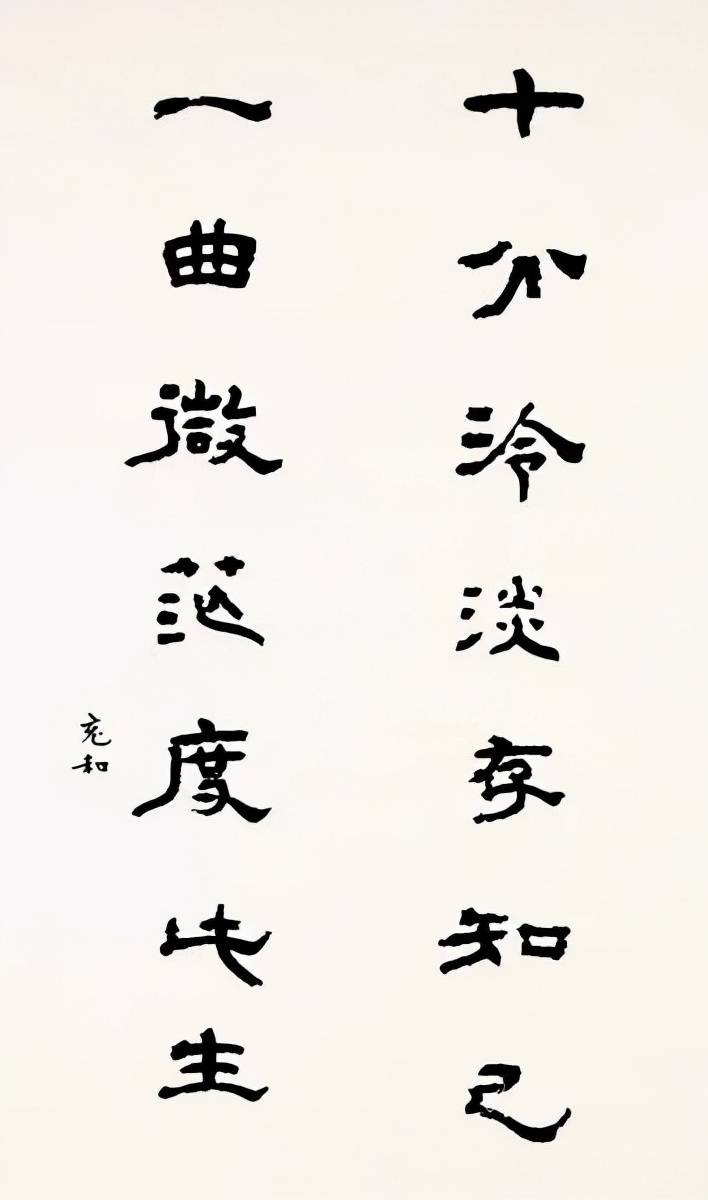 十分冷淡存知己
一曲微茫度此生
充和